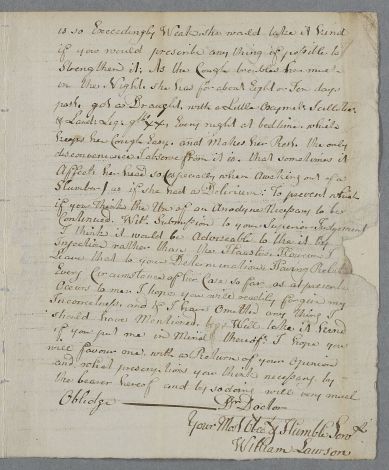 is so Exceedingly Weak she would take it kind
if you would prescribe any thing if possible to
strengthen it. As the Cough troubles her most
in the Night, she has for about Eight or Ten days
past, got a Draught, with a Little Oxymel: Scillit:
& Laud: Liq: Every night at bedtime, which
keeps her Cough Easy, and Makes her Rest, the only
inconvenience I observe from it is, that sometimes it
Affects her head so Especially when Awaking out of a
Slumber, as if she had a Delirium: To prevent which
if you think the Use of an Anodyne Necessary to be
Continued, With Submission to your Superior Judgement
I think it would be Adviseable to Use it by
Injection rather than the However I
Leave that to your Determination. Having Related
Every Circumstance of her Case so far, as at present
Occurs to me, I hope you will readily forgive my
and if I have Omitted any thing I
should have Mentioned, Will take it kind
if you put me in Mind thereof. I hope you
will favour me, with a Return of your Opinion
and what prescriptions you think necessary by
the bearer hereof and by so doing will very much
Oblidge Dr Doctor
Your Most Obedt Humble Servt
William Lawson